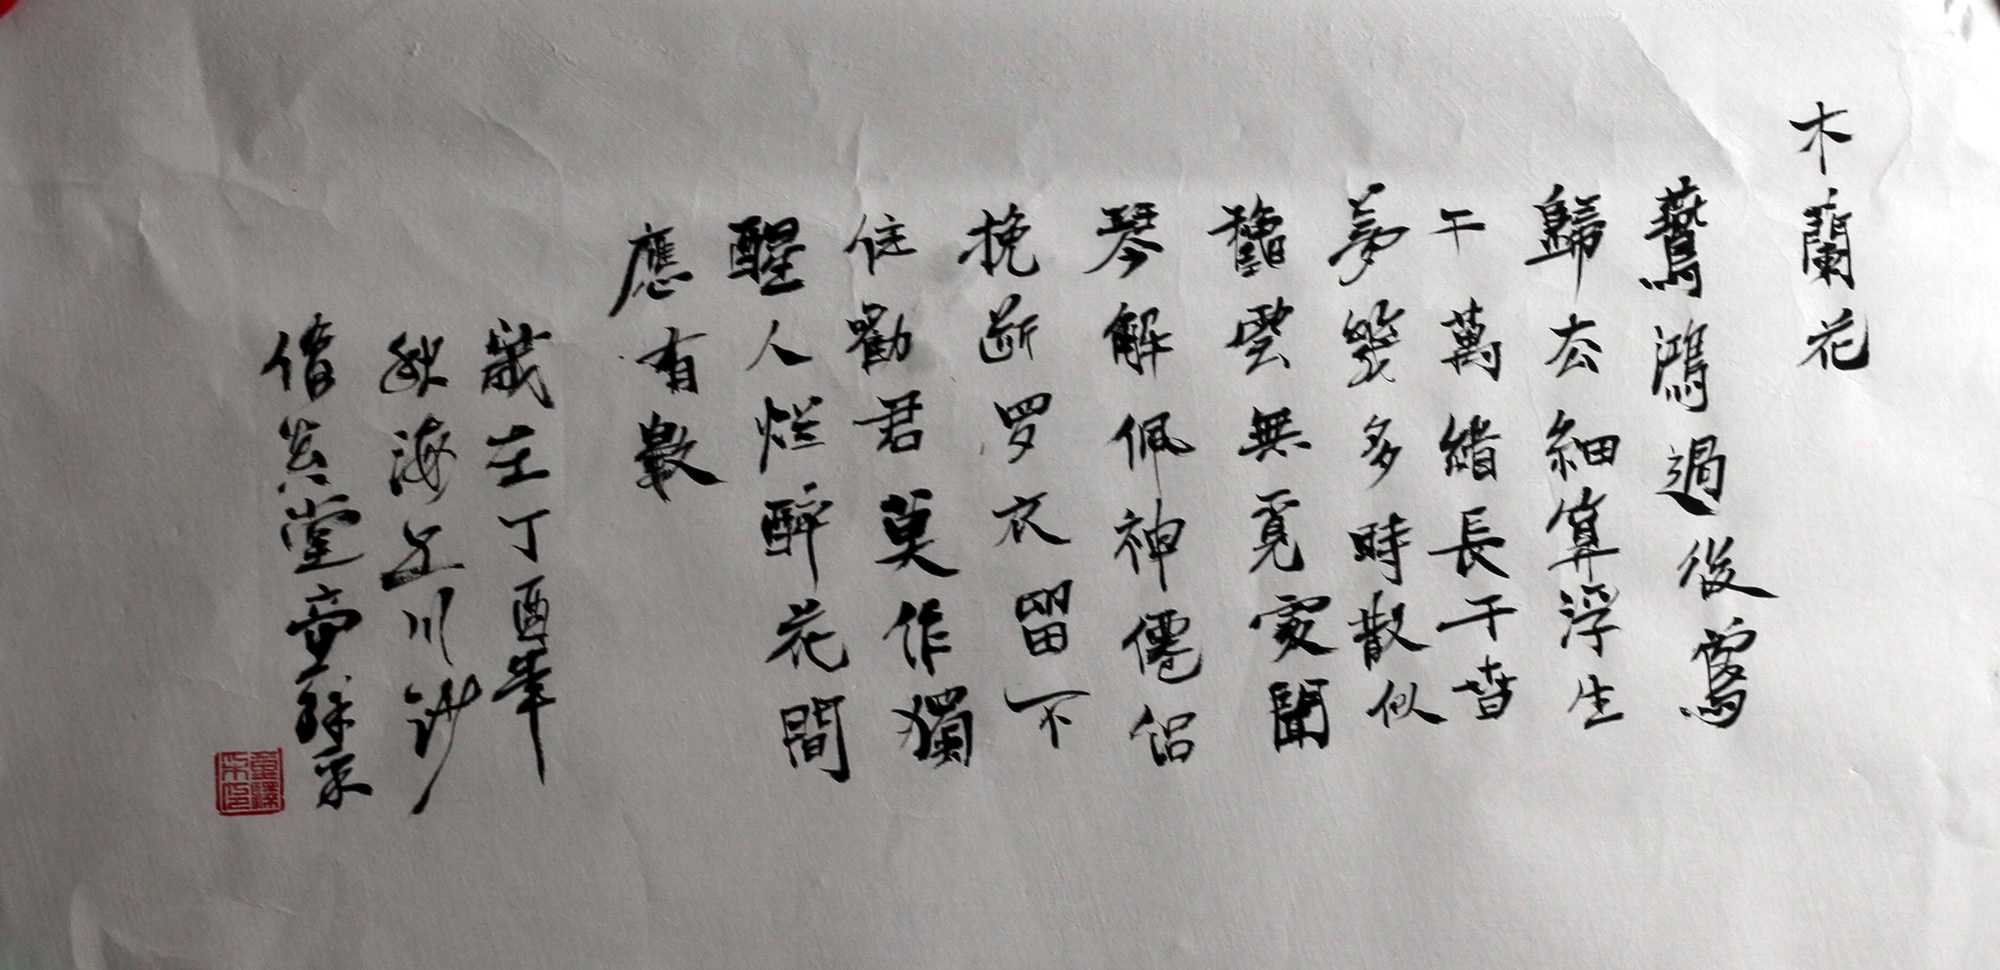 木蘭花
鷰鴻過後鶯
歸去細算浮生
千萬緒長于春
夢幾多時散似
龝雲無覓處聞
琴解佩神僊侣
挽断罗衣留不
住勸君莫作獨
醒人烂醉花間
應有數
歲在丁酉年
秋海上川沙
堂童采